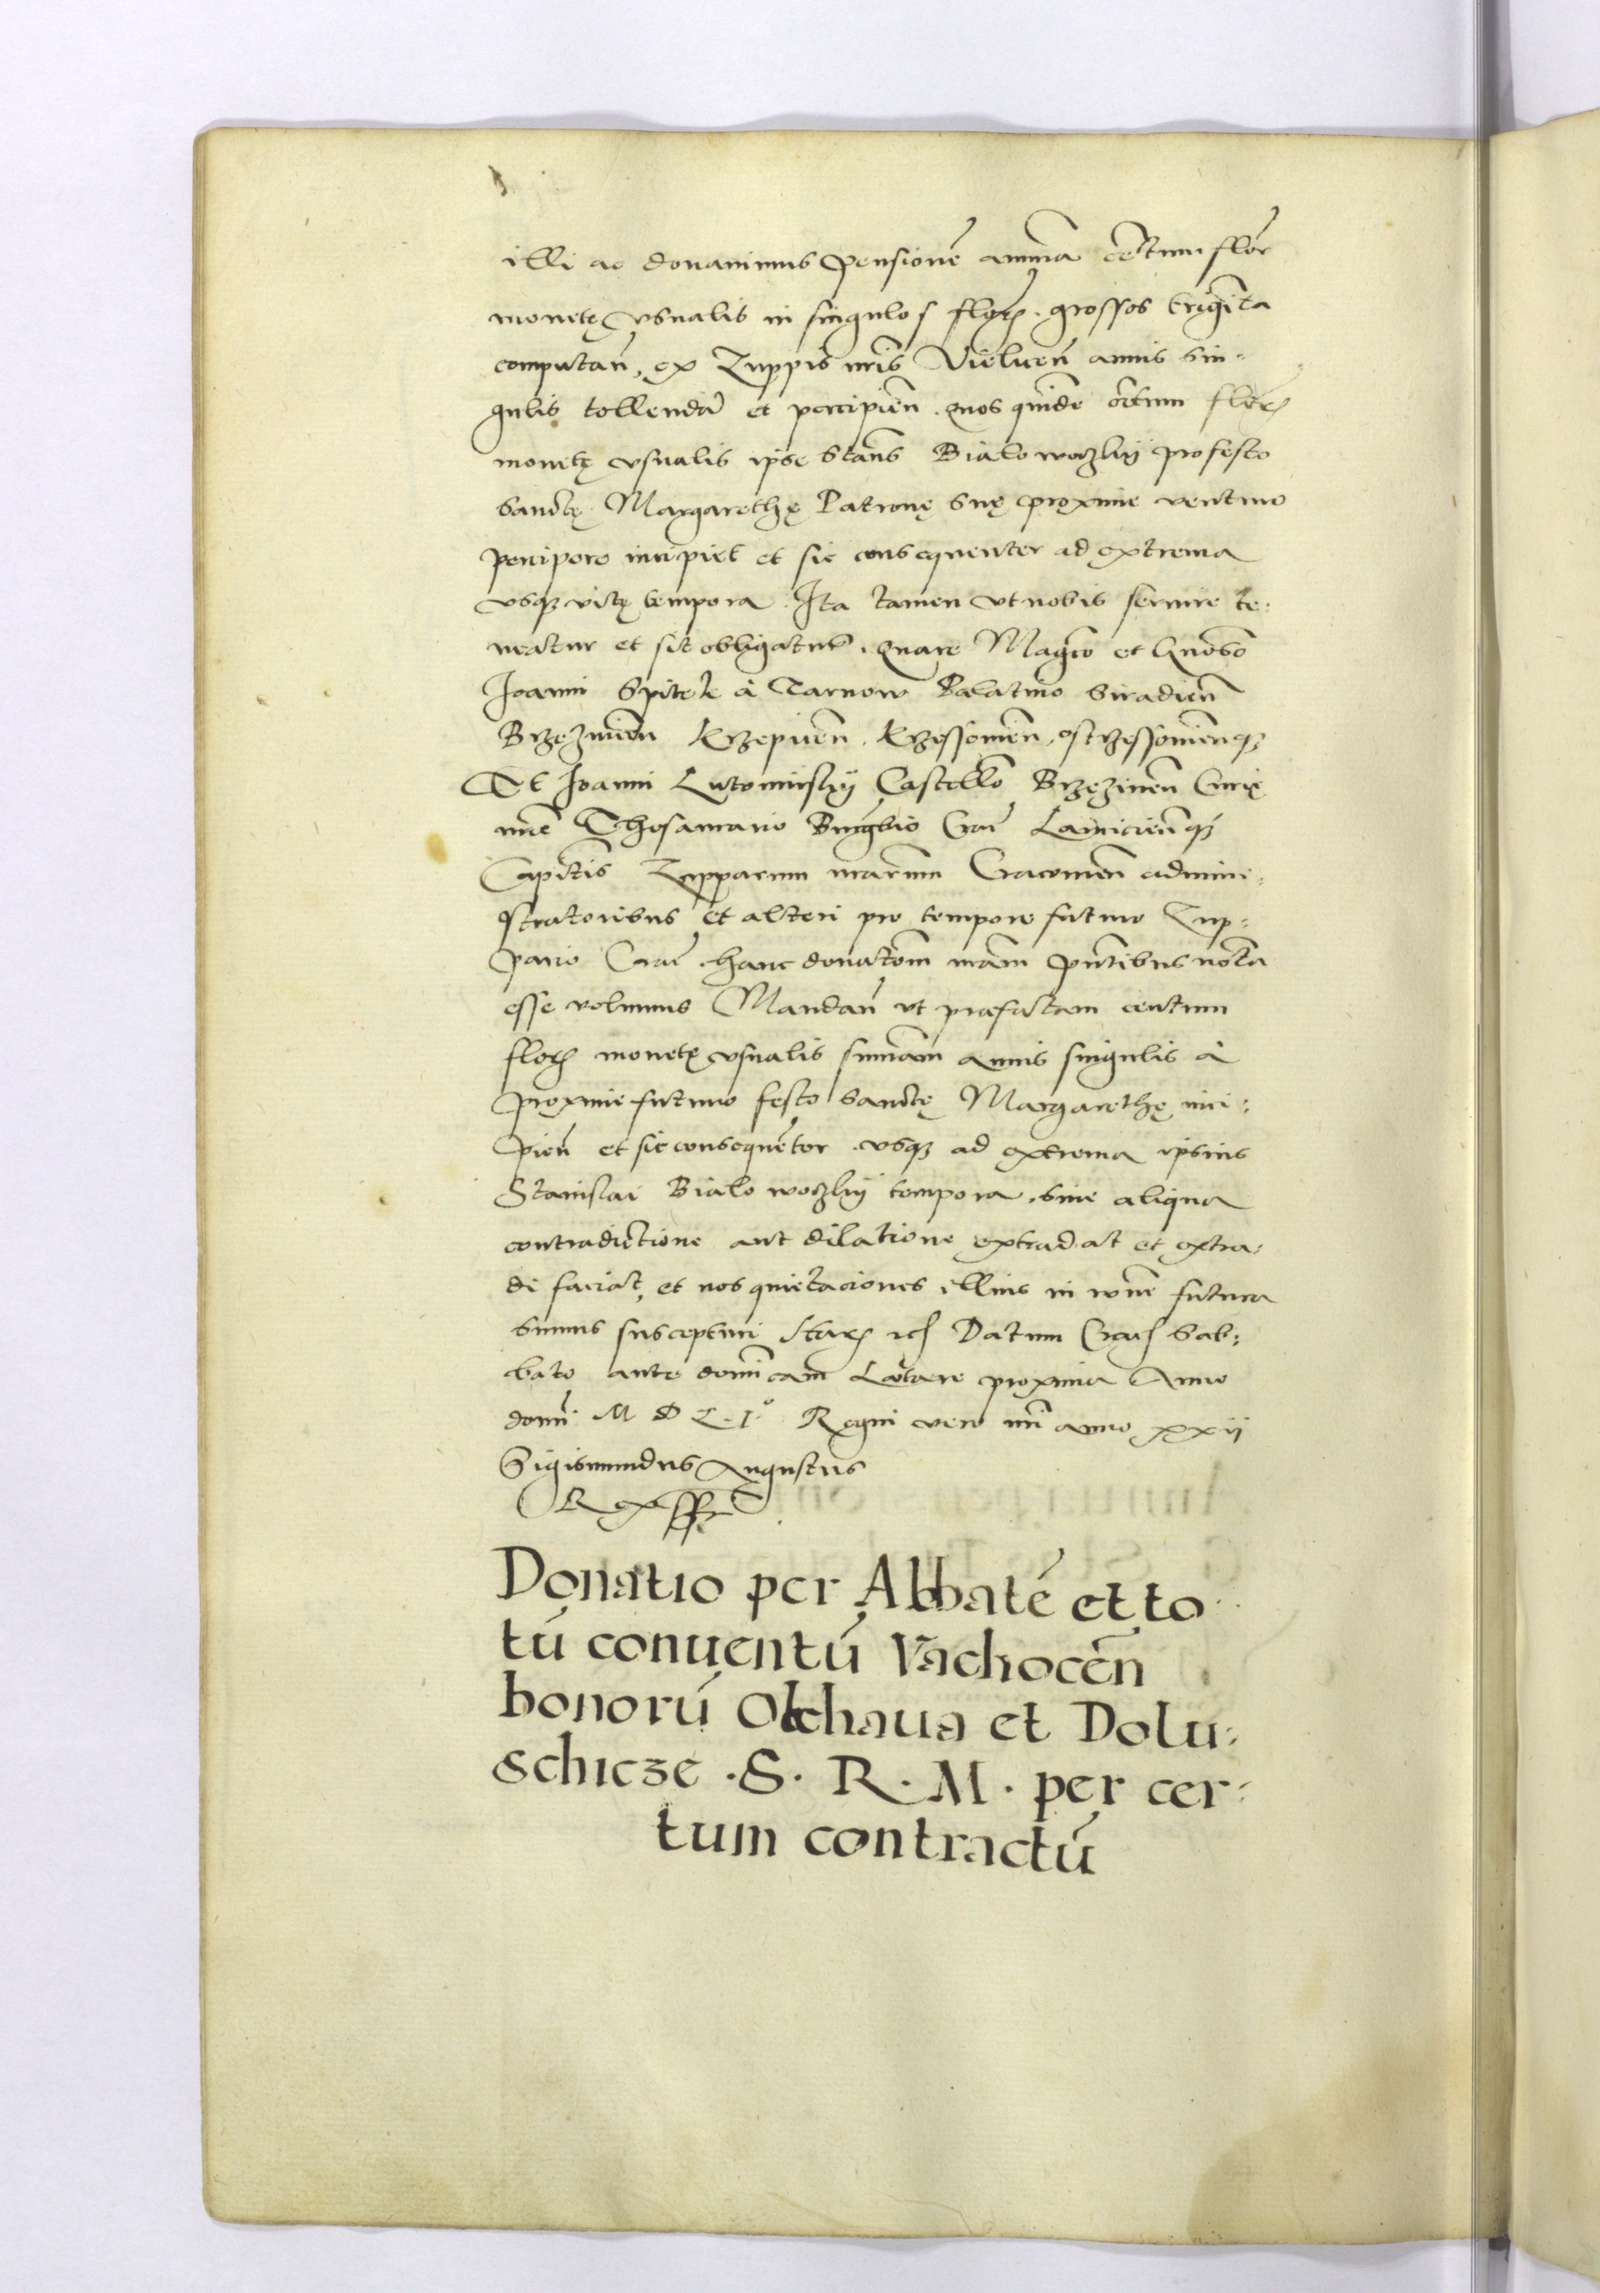 illi ac donavimus pensionē annuā cētum flor̄
monetę vsualis in singulos flor̄. grossos triginta
computan̄, ex Zuppis nr̄is Vielicen̄ annis sin-
gulis tollendā et percipien̄. quos quidē cētum flor̄
monetę vsualis ipse Stan̄s Bialowoczkij pro festo
Sanctę Margarethę Patronę suę proxime venturo
percipere incipiet et sic consequenter ad extrema
vsq̨ vitę tempora. Ita tamen vt nobis servire te-
neatur et sit obligatus. quare Mag͞co et Gn͞oso
Joanni Spitek à Tarnow Palatino Siradien̄
Brzezinen̄ Krzepicen̄. Krzessovien̄. ostrzessovien̄q̨
Et Joanni Lutomirskij Castell͞o Brzęzinen̄ Curię
nr̄e Thesaurario Burg͞bio Crac̄ Lanicien̄q̨
Capit͞is Zupparum nr̄arum Cracovien̄ admini-
stratoribus et alteri pro tempore futuro Zup-
pario Crac̄. hanc donatōem nr̄am pn̄tibus notā
esse volumus Mandan̄ vt praefatam centum
flor̄ monetę vsualis summam annis singulis à
proxime futuro festo Sanctę Margarethę inci-
pien̄ et sic consequēter vsq̨ ad extrema ipsius
Stanislai Bialowoczkij tempora, sine aliqua
contradictione aut dilatione extradat et extra-
di faciat, et nos quietaciones illius in rōne futura
sumus suscepturi Har̄ rēs Datum Crac̄ Sab-
bato ante domīcam Laetare proxima Anno
domī M D L.I.º Regni vero nr̄i anno xxii
Sigismundus Augustus
Rex sst
Donatio per Abbatē et to
tū conuentū Vachocēn
bonorū Olchaua et Dolu-
schicze .S. R. M. per cer-
tum contractū